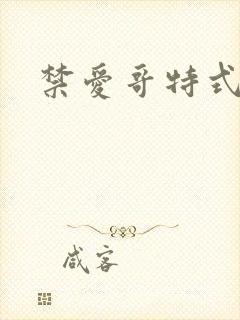 禁愛哥特式
咸客